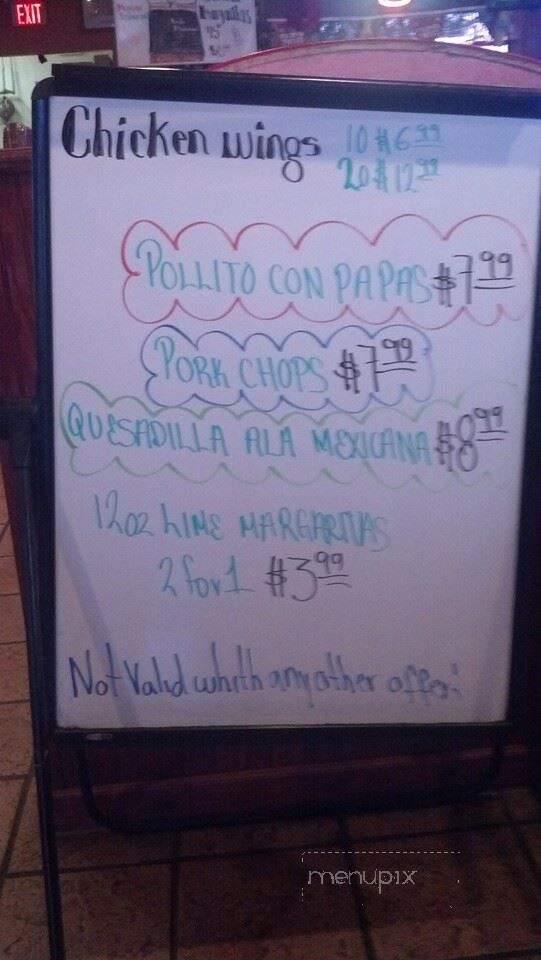 EXIT
Chicken wings 10 $6.99
20 $12.99
POLLITO CON PAPAS $7.99
PORK CHOPS $7.99
QUESADILLA ALA MEXICANA $8.99
12oz LIME MARGARITAS
2 for 1 $3.99
Not Valid whith any other offer!
menupix